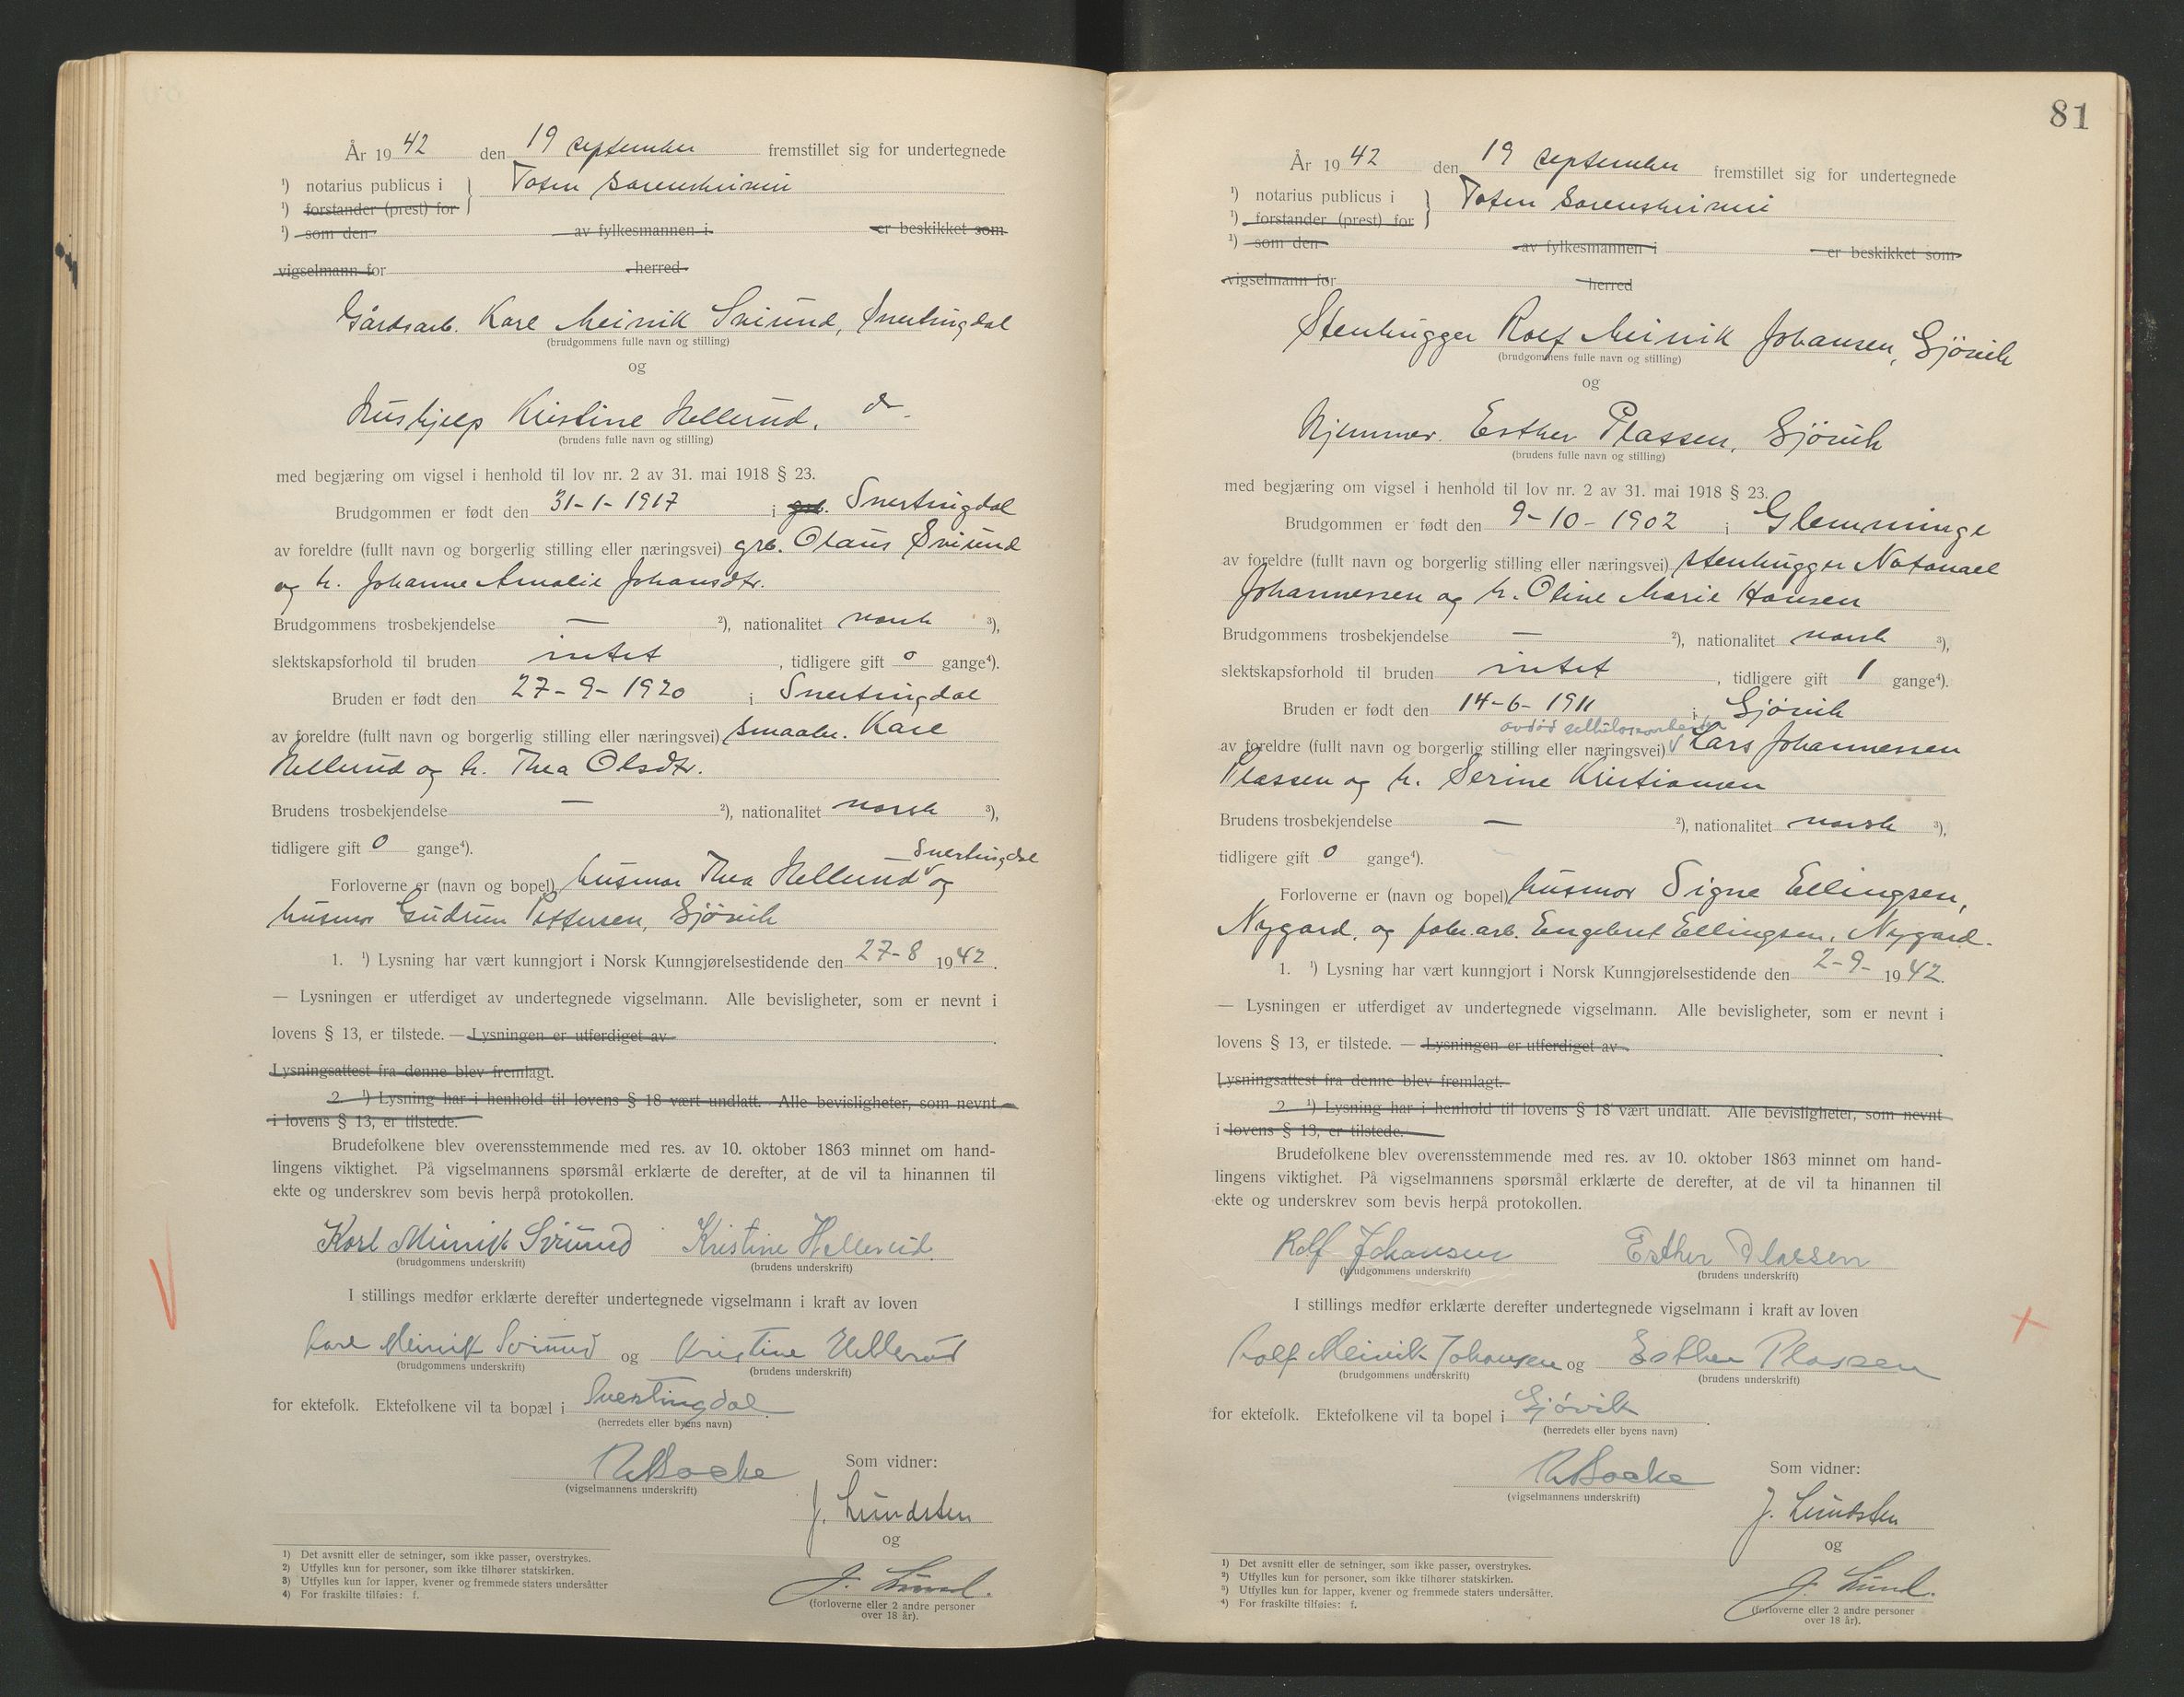 År 19 42 den 19 september fremstillet sig for undertegnede
¹) notarius publicus i } Toten sorenskriveri
¹) forstander (prest) for
¹) som den av fylkesmannen i er beskikket som
vigselmann for herred
Gårdsarb. Karl Meinik Sviund, Snertingdal
(brudgommens fulle navn og stilling)
og
Hushjelp Kristine Hellerud, do.
(brudens fulle navn og stilling)
med begjæring om vigsel i henhold til lov nr. 2 av 31. mai 1918 § 23.
Brudgommen er født den 31-1-1917 i Snertingdal
av foreldre (fullt navn og borgerlig stilling eller næringsvei) grb. Olaus Sviund
og h. Johanne Amalie Johansdtr.
Brudgommens trosbekjendelse — ²), nationalitet norsk ³),
slektskapsforhold til bruden intet, tidligere gift 0 gange⁴).
Bruden er født den 27-9-1920 i Snertingdal
av foreldre (fullt navn og borgerlig stilling eller næringsvei) smaabr. Karl
Hellerud og h. Thea Olsdtr.
Brudens trosbekjendelse — ²), nationalitet norsk ³),
tidligere gift 0 gange⁴).
Snertingdal
Forloverne er (navn og bopel) husmor Thea Hellerud og
husmor Gudrun Pettersen, Gjövik
1. ¹) Lysning har vært kunngjort i Norsk Kunngjørelsestidende den 27-8 1942.
— Lysningen er utferdiget av undertegnede vigselmann. Alle bevisligheter, som er nevnt i
lovens § 13, er tilstede. — Lysningen er utferdiget av
Lysningsattest fra denne blev fremlagt.
2. ¹) Lysning har i henhold til lovens § 18 vært undlatt. Alle bevisligheter, som nevnt
i lovens § 13, er tilstede.
Brudefolkene blev overensstemmende med res. av 10. oktober 1863 minnet om hand-
lingens viktighet. På vigselmannens spørsmål erklærte de derefter, at de vil ta hinannen til
ekte og underskrev som bevis herpå protokollen.
Karl Meinik Sviund Kristine Hellerud.
(brudgommens underskrift) (brudens underskrift)
I stillings medfør erklærte derefter undertegnede vigselmann i kraft av loven
Karl Meinik Sviund og Kristine Hellerud
(brudgommens underskrift) (brudens underskrift)
for ektefolk. Ektefolkene vil ta bopæl i Snertingdal.
(herredets eller byens navn)
Som vidner:
(vigselmannens underskrift)
J. Lundsten
og
J. Lund.
(forloverne eller 2 andre personer
over 18 år).
1) Det avsnitt eller de setninger, som ikke passer, overstrykes.
2) Utfylles kun for personer, som ikke tilhører statskirken.
3) Utfylles kun for lapper, kvener og fremmede staters undersåtter
4) For fraskilte tilføies: f.
81
År 19 42 den 19 september fremstillet sig for undertegnede
¹) notarius publicus i } Toten sorenskriveri
¹) forstander (prest) for
¹) som den av fylkesmannen i er beskikket som
vigselmann for herred
Stenhugger Rolf Meinik Johansen, Gjövik
(brudgommens fulle navn og stilling)
og
Hjemmev. Esther Plassen, Gjövik
(brudens fulle navn og stilling)
med begjæring om vigsel i henhold til lov nr. 2 av 31. mai 1918 § 23.
Brudgommen er født den 9-10-1902 i Glemminge
av foreldre (fullt navn og borgerlig stilling eller næringsvei) stenhugger Natanael
Johannessen og h. Oline Marie Hansen
Brudgommens trosbekjendelse — ²), nationalitet norsk ³),
slektskapsforhold til bruden intet, tidligere gift 1 gange⁴).
Bruden er født den 14-6-1911 i Gjövik
avdöd cellulosearbeider
av foreldre (fullt navn og borgerlig stilling eller næringsvei) Lars Johannessen
Plassen og h. Serine Kristiansen
Brudens trosbekjendelse — ²), nationalitet norsk ³),
tidligere gift 0 gange⁴).
Forloverne er (navn og bopel) husmor Signe Ellingsen,
Nygard, og fabr.arb. Engebret Ellingsen, Nygard.
1. ¹) Lysning har vært kunngjort i Norsk Kunngjørelsestidende den 2-9- 1942.
— Lysningen er utferdiget av undertegnede vigselmann. Alle bevisligheter, som er nevnt i
lovens § 13, er tilstede. — Lysningen er utferdiget av
Lysningsattest fra denne blev fremlagt.
2. ¹) Lysning har i henhold til lovens § 18 vært undlatt. Alle bevisligheter, som nevnt
i lovens § 13, er tilstede.
Brudefolkene blev overensstemmende med res. av 10. oktober 1863 minnet om hand-
lingens viktighet. På vigselmannens spørsmål erklærte de derefter, at de vil ta hinannen til
ekte og underskrev som bevis herpå protokollen.
Rolf Johansen Esther Plassen
(brudgommens underskrift) (brudens underskrift)
I stillings medfør erklærte derefter undertegnede vigselmann i kraft av loven
Rolf Meinik Johansen og Esther Plassen
(brudgommens underskrift) (brudens underskrift)
for ektefolk. Ektefolkene vil ta bopel i Gjövik.
(herredets eller byens navn)
Som vidner:
(vigselmannens underskrift)
J. Lundsten
og
J. Lund.
(forloverne eller 2 andre personer
over 18 år).
¹) Det avsnitt eller de setninger, som ikke passer, overstrykes.
²) Utfylles kun for personer, som ikke tilhører statskirken.
³) Utfylles kun for lapper, kvener og fremmede staters undersåtter.
⁴) For fraskilte tilføies: f.